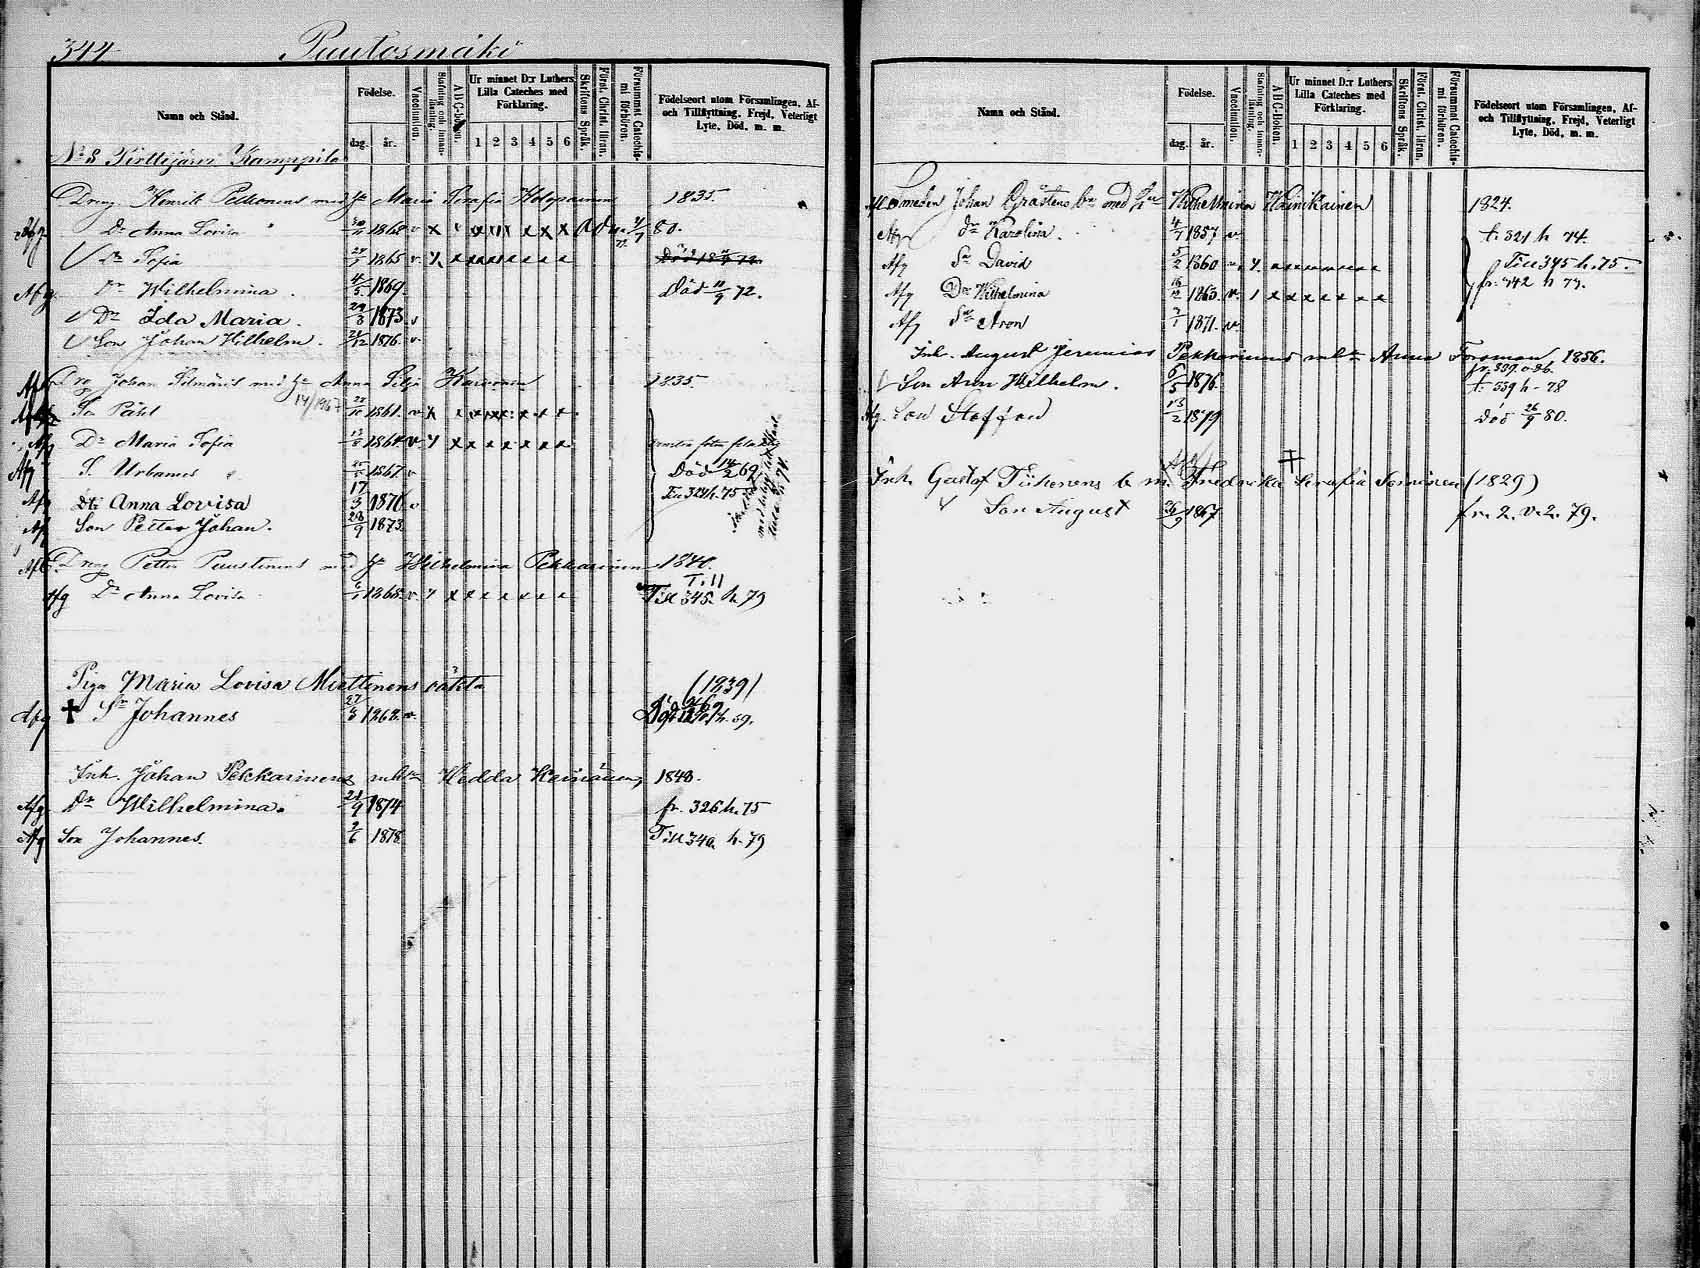 344 Puutosmäki
Namn och Stånd.
Födelse.
dag. år.
Vaccination.
Stafning och innanläsning.
A B C-Boken.
Ur minnet D:r Luthers Lilla Cateches med Förklaring.
1 2 3 4 5 6
Skriftens Språk.
Först. Christ. läran.
Försummat Catechismi förhören.
Födelseort utom Församlingen, Af- och Tillflyttning, Frejd, Veterligt Lyte, Död, m. m.
N:o 8 Pirttijärvi Kamppila
Dreng Henrik Pelkonens med h:u Maria Serafia Holopainen 1835.
Afg. D:r Anna Lovisa 1868 v x x x x x x x 80.
D:r Sofia 1865 v x x x x x x
Afg D:r Wilhelmina 4/5 1869 Död 11/9 72.
D:r Ida Maria. 29/3 1873 v
Son Johan Wilhelm. 21/12 1876 v
Afg Dre Johan med h:u Anna 1835
14/1967
Son Påhl 1861. v x x x x x x x
Afg D:r Maria Sofia 1864 v x x x x x x x
Afg S. Urbanus 1867 v Död 14/2 69
Afg D:r Anna Lovisa 17/3 1876 v Till 324 h. 75
Af Son Petter Johan. 28/9 1873
Afg. Dreng Petter Puustinens med h:u Wilhelmina Pekkarinen 1840.
Till
Afg D:r Anna Lovisa 6/1 1865 v x x x x x x Till 345 h. 79
Piga Maria Lovisa Miettinens oäkta (1939)
Afg + S:n Johannes 1862 v.
Inh. Johan Pekkarinens m h:u Hedda 1840.
Afg D:r Wilhelmina. 21/9 1874 fr. 326 h. 75
Afg Son Johannes. 2/6 1878 Till 340 h. 79
Namn och Stånd.
Födelse.
dag. år.
Vaccination.
Stafning och innanläsning.
A B C-Boken.
Ur minnet D:r Luthers Lilla Cateches med Förklaring.
1 2 3 4 5 6
Skriftens Språk.
Först. Christ. läran.
Försummat Catechismi förhören.
Födelseort utom Församlingen, Af- och Tillflyttning, Frejd, Veterligt Lyte, Död, m. m.
Smeden Johan Gråstens b:n med h:u Wilhelmina Hämikainen 1824.
Afg D:r Karolina. 4/1 1857 v. t. 321 h 74.
Afg S:n David 5/2 1860 v. x x x x x x x Till 345 h. 75.
Afg D:r Wilhelmina 16/12 1865 v. x x x x x x fr. 342 h 77.
Afg S:n Aron 2/1 1871. v.
Inh. August Jeremias Pekkarinens m h:u Anna Forsman, 1856.
Son Aron Wilhelm. 6/5 1876. t. 539 h - 78
Afg. Son Staffan 13/2 1879 död 26/9 80.
Inh. Gustaf Tiihonens b m. Fredrika Serafia Sominen (1829)
Son August 26/9 1867 fr. 2. v. 2. 79.